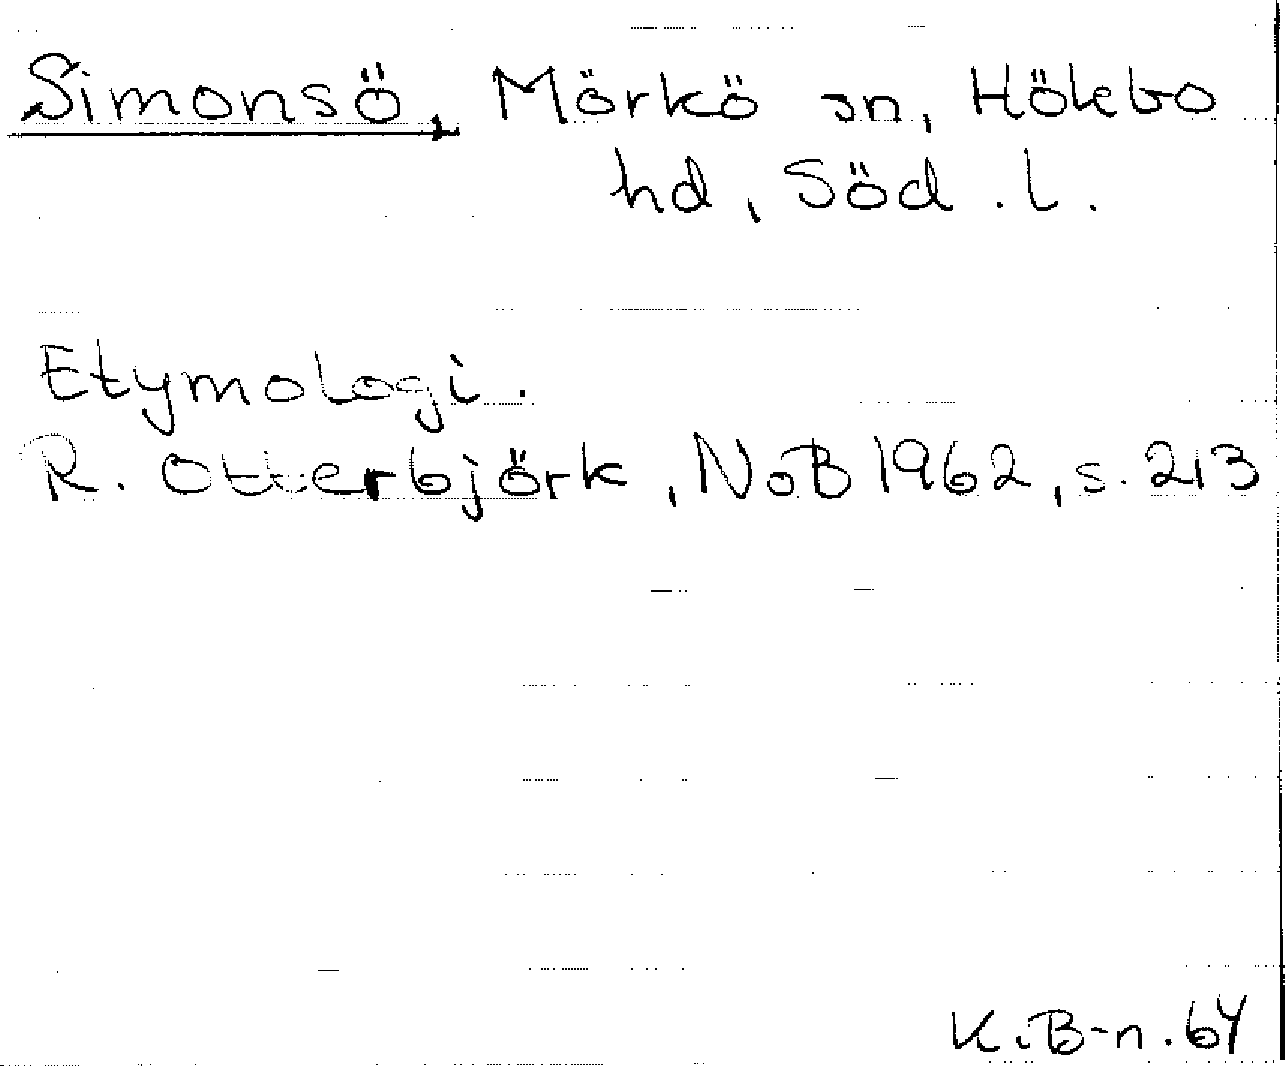 Simonsö, Mörkö sn, Hölebo
hd, Söd. l.
Etymologi.
R. Otterbjörk, NoB 1962, s. 213
K. B-n. 64